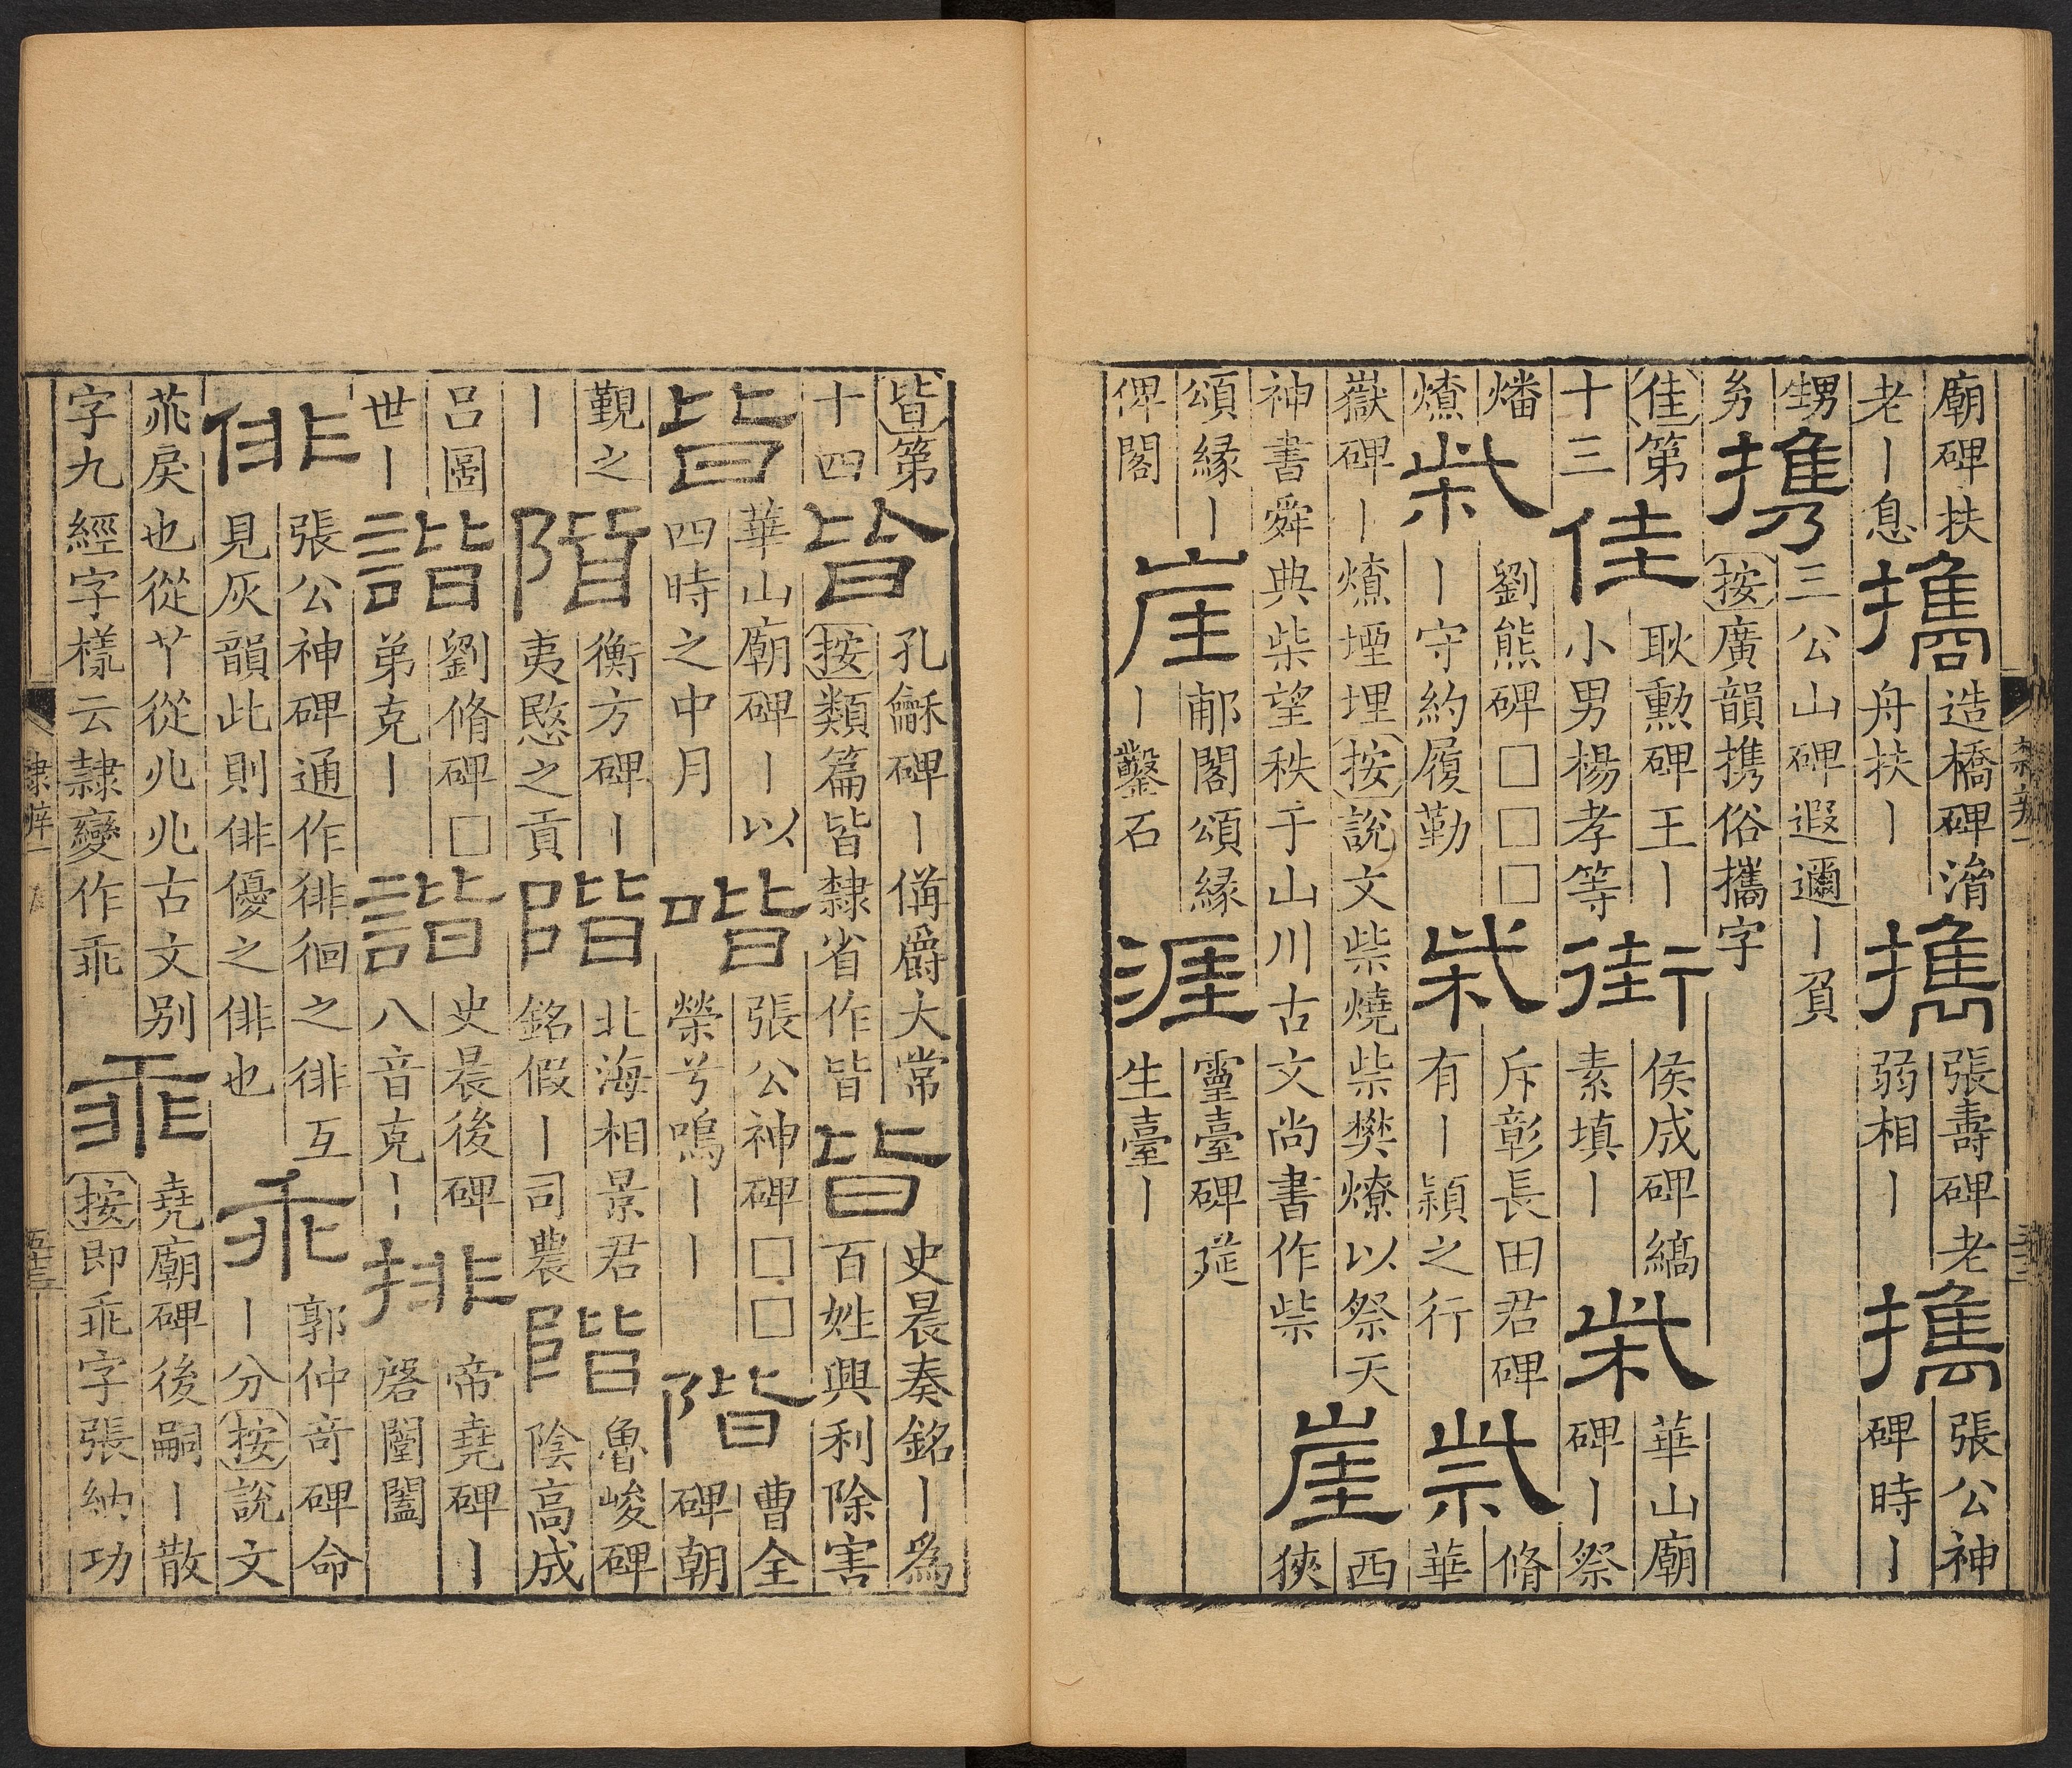 廟碑扶
老丨息
攜
造橋碑濟
舟扶丨
攜
張壽碑老
弱相丨
攜
張公神
碑時丨
甥
携
三公山碑遐邇丨負
按廣韻携俗攜字
佳第
十三
佳
耿勲碑王丨
小男楊孝等
街
侯成碑縞
素填丨
柴
華山廟
碑丨祭
燔
燎
柴
劉熊碑□□□
丨守約履勤
柴
斥彰長田君碑
有丨頴之行
祡
脩
華
嶽碑丨燎堙埋按說文祡燒柴樊燎以祭天
神書舜典柴望秩于山川古文尚書作祡
崖
西
狹
頌縁丨
俾閣
崖
郙閣頌縁
丨鑿石
涯
靈臺碑莚
生臺丨
隸辨
皆第
十四
皆
孔龢碑丨偁爵大常
按類篇皆隸省作皆
皆
史晨奏銘丨爲
百姓興利除害
皆
華山廟碑丨以
四時之中月
喈
張公神碑□□
榮兮鳴丨丨
階
曹全
碑朝
覲之
丨
階
衡方碑丨
夷愍之貢
階
北海相景君
銘假丨司農
階
魯峻碑
陰高成
呂圖
世丨
諧
劉脩碑□
弟克丨
諧
史晨後碑
八音克丨
排
帝堯碑丨
啓閶闔
俳
張公神碑通作徘徊之徘互
見灰韻此則俳優之俳也
乖
郭仲奇碑命
丨分按說文
乖戾也從丫從兆兆古文別
字九經字樣云隸變作乖
乖
堯廟碑後嗣丨散
按即乖字張納功
隸辨一
五十三